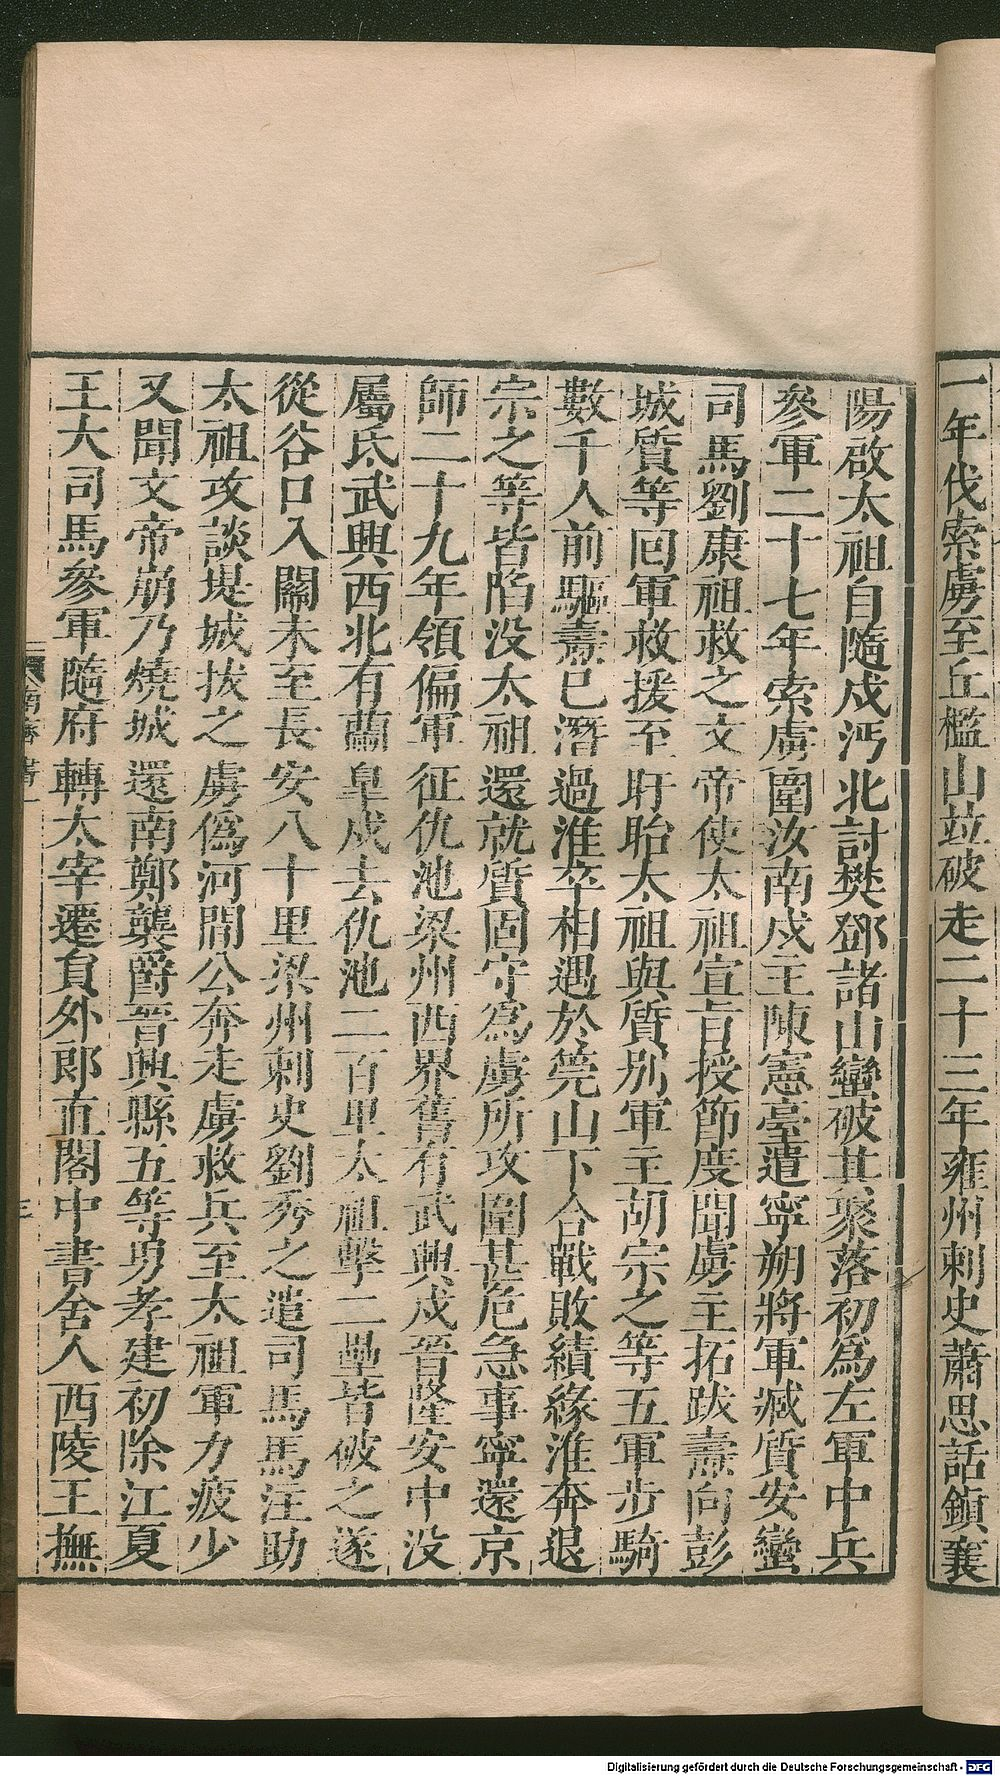 一年伐索虜至丘檻山並破走二十三年雍州刺史蕭思話鎮襄
陽啟太祖自隨戍沔北討樊鄧諸山蠻破其聚落初為左軍中兵
參軍二十七年索虜圍汝南戍主陳憲臺遣寧朔將軍臧質安蠻
司馬劉康祖救之文帝使太祖宣旨授節度聞虜主拓跋燾向彭
城質等回軍救援至盱眙太祖與質別軍主胡宗之等五軍步騎
數千人前驅燾已潛過淮卒相遇於莞山下合戰敗績緣淮奔退
宗之等皆陷没太祖還就質固守為虜所攻圍甚危急事寧還京
師二十九年領偏軍征仇池梁州西界舊有武興戍晉隆安中没
屬氐武興西北有蘭皐戍去仇池二百里太祖擊二壘皆破之遂
從谷口入關未至長安八十里梁州刺史劉秀之遣司馬馬注助
太祖攻談堤城拔之虜偽河間公奔走虜救兵至太祖軍力疲少
又聞文帝崩乃燒城還南鄭襲爵晉興縣五等男孝建初除江夏
王大司馬參軍隨府轉太宰遷員外郎直閤中書舍人西陵王撫
南齊書一
三
Digitalisierung gefördert durch die Deutsche Forschungsgemeinschaft - DFG